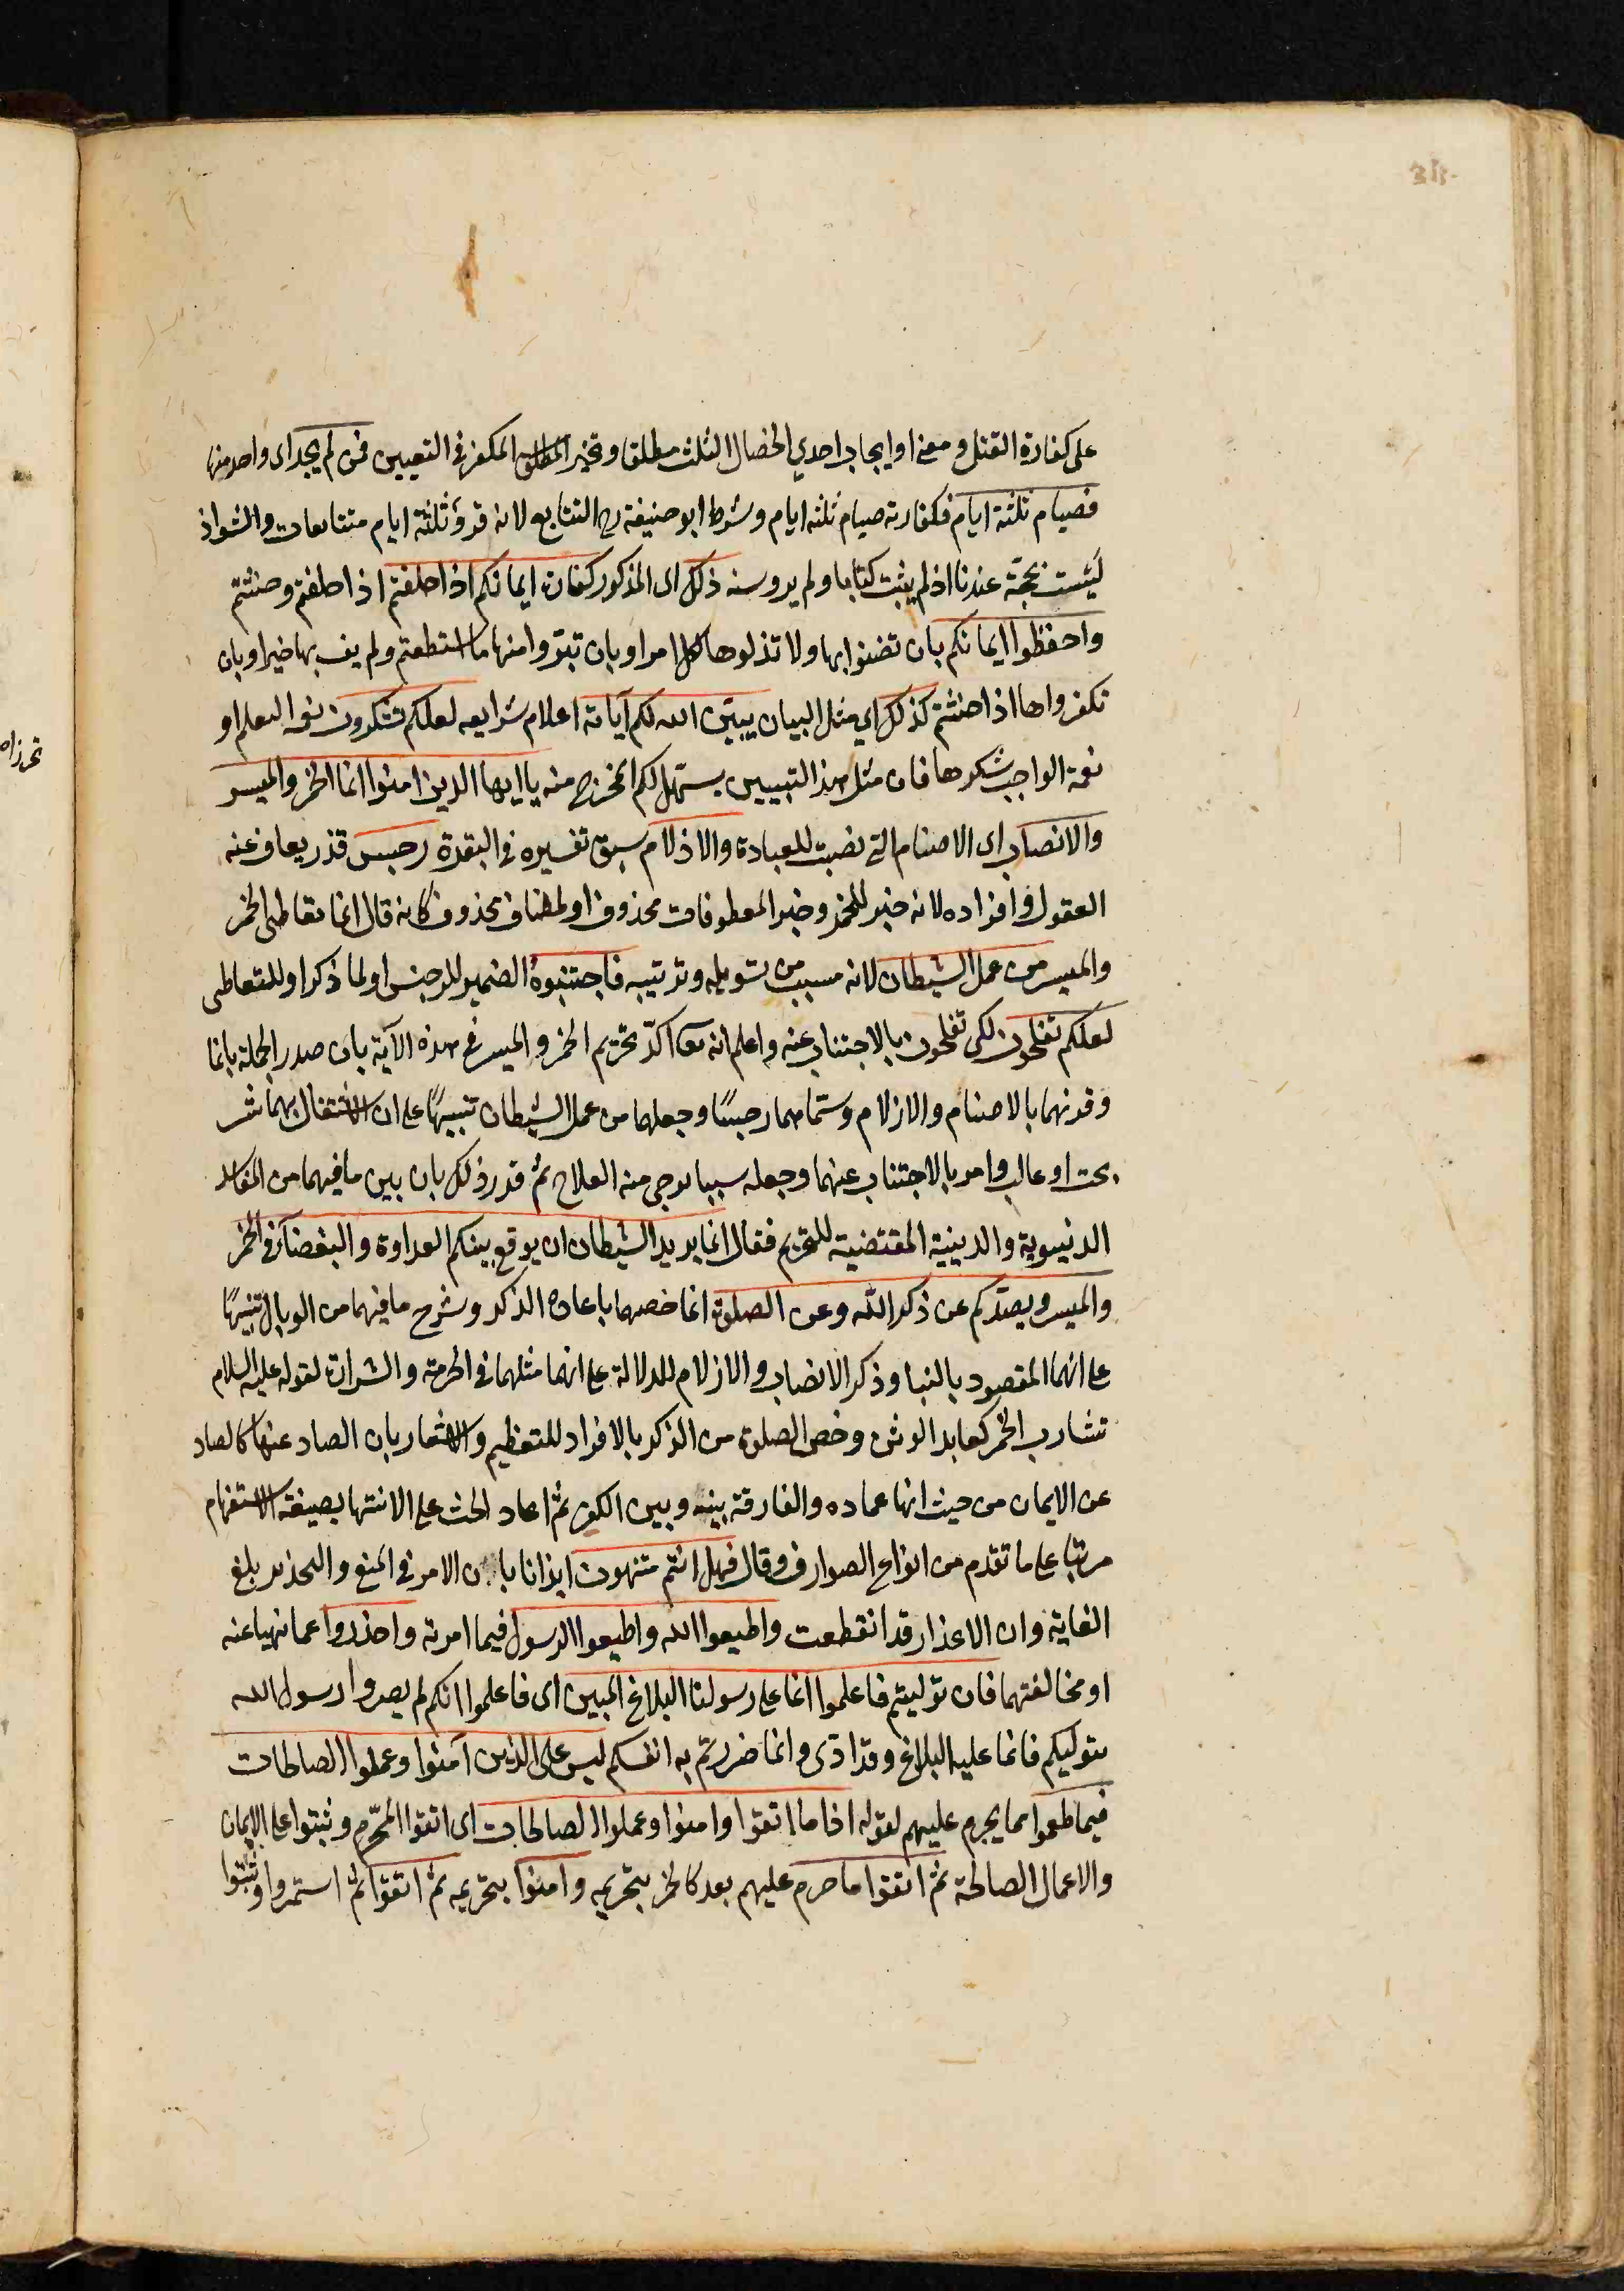 على كفارة القتل ومعنى او ايجاب احدي الخصال الثلث مطلقا وتخير المكفر في التعيين فمن لم يجد اى واحد منها
فصيام ثلثة ايام فكفارته صيام ثلثه ايام وشرط ابو حنيفة رح التتابع لانه قرؤ ثلثة ايام متتابعات والشواذ
ليست بحجّة عندنا اذ لم يثبت كتابا ولم يرو سنه ذلك اى المذكور كفارة ايمانكم اذا حلفتم اذا حلفتم وحنثتم
واحفظوا ايمانكم بان تضنوا بها ولا تذلوها لكل امر او بان تبرّوا منها ما استطعتم ولم يف بها خيرا وبان
تكفروها اذا حنثتم كذلك اي مثل البيان يبيّن الله لكم آياته اعلام شرايعه لعلكم تشكرون نعمة التعلم او
نعمة الواجب شكرها فان مثل هذا التبيين يسهل لكم المخرج منه يا ايها الذين امنوا انما الخمر والميسر
والانصاب اى الاصنام التي نصبت للعبادة والاذلام سبق تفسيره في البقرة رجس قذر يعاف عنه
العقول وافراده لانه خبر للخمر وخبر المعطوفات محذوف او لمضاف محذوف كانه قال انما تعاطى الخمر
والميسر من عمل الشيطان لانه مسبب من تسويله وترتيبه فاجتنبوهُ الضمير للرجس او لما ذكر او للتعاطى
لعلكم تفلحون لكى تفلحون بالاجتناب عنه واعلم انه تعا اكّد تحريم الخمر والميسر في هذه الآية بان صدر الجملة بانما
وقرنهما بالاصنام والازلام وسمّاهما رجسًا وجعلهما من عمل الشيطان تنبيهًا على ان الاشتغال بهما شر
بحت او غالب وامر بالاجتناب عنهما وجعله سببا يرجى منه الفلاح ثم قرر ذلك بان بين ما فيهما من المفاسد
الدنيوية والدينية المقتضية للتحريم فقال انما يريد الشيطان ان يوقع بينكم العداوة والبغضآء في الخمر
والميسر ويصدّكم عن ذكر الله وعن الصلوة انما خصهما باعادة الذكر وشرح ما فيهما من الوبال تنبيهًا
على انهما المقصود بالنبا وذكر الانصاب والازلام للدلالة على انهما مثلهما في الحرمة والشرارة لقوله عليه السلام
شارب الخمر كعابد الوثن وخص الصلوة من الذكر بالافراد للتعظيم والاشعار بان الصاد عنها كالصاد
عن الايمان من حيث انها عماده والفارقة بينه وبين الكفر ثم اعاد الحث على الانتها بصيغة الاستفهام
مرتبا على ما تقدم من انواع الصوارف وقال فهل انتم منتهون ايذانا بان الامر في المنع والتحذير بلغ
الغاية وان الاعذار قد انقطعت واطيعوا الله واطيعوا الرسول فيما امر به واحذروا عما نهيا عنه
او مخالفتهما فان توليتم فاعلموا انما على رسولنا البلاغ المبين اى فاعلموا انكم لم يضروا رسول الله
بتوليكم فانما عليه البلاغ وقد ادّى وانما ضررتم به انفسكم ليس على الذين آمنوا وعملوا الصالحات
فيما طعموا مما يحرم عليهم لقوله اذا ما اتقوا وامنوا وعملوا الصالحات اى اتقوا المحّرم وثبتوا على الايمان
والاعمال الصالحة ثم اتقوا ما حرم عليهم بعد كالخمر بتحريمه وامنوا بتحريمه ثم اتقوا ثم استمروا وثبتوا